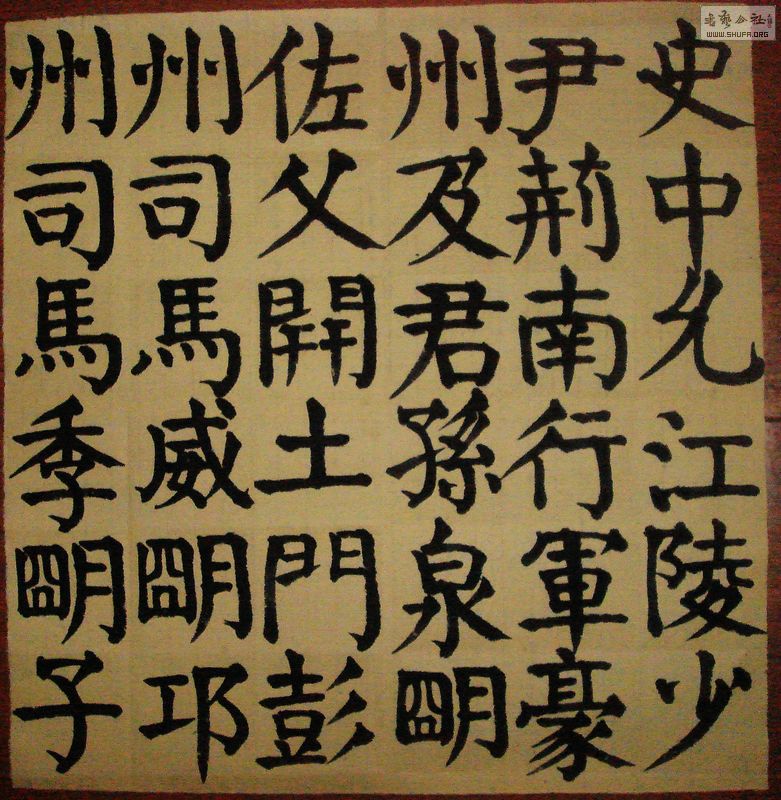 史中允江陵少
尹荊南行軍豪
州及君孫泉明
佐父開土門彭
州司馬威明邛
州司馬季明子
书艺公社
WWW.SHUFA.ORG